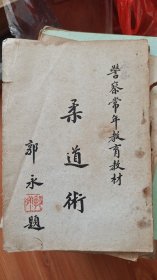 警察常年教育教材
柔道術
郭永題